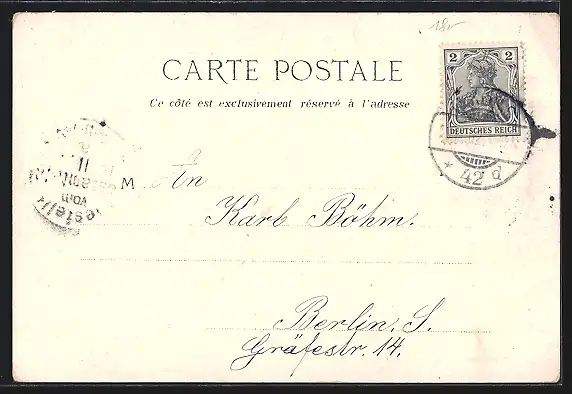 CARTE POSTALE
Ce côté est exclusivement réservé à l'adresse
2 2
DEUTSCHES REICH
* 42 d
11
vom
M An
Karl Böhm.
Berlin. S.
Gräfestr. 14.